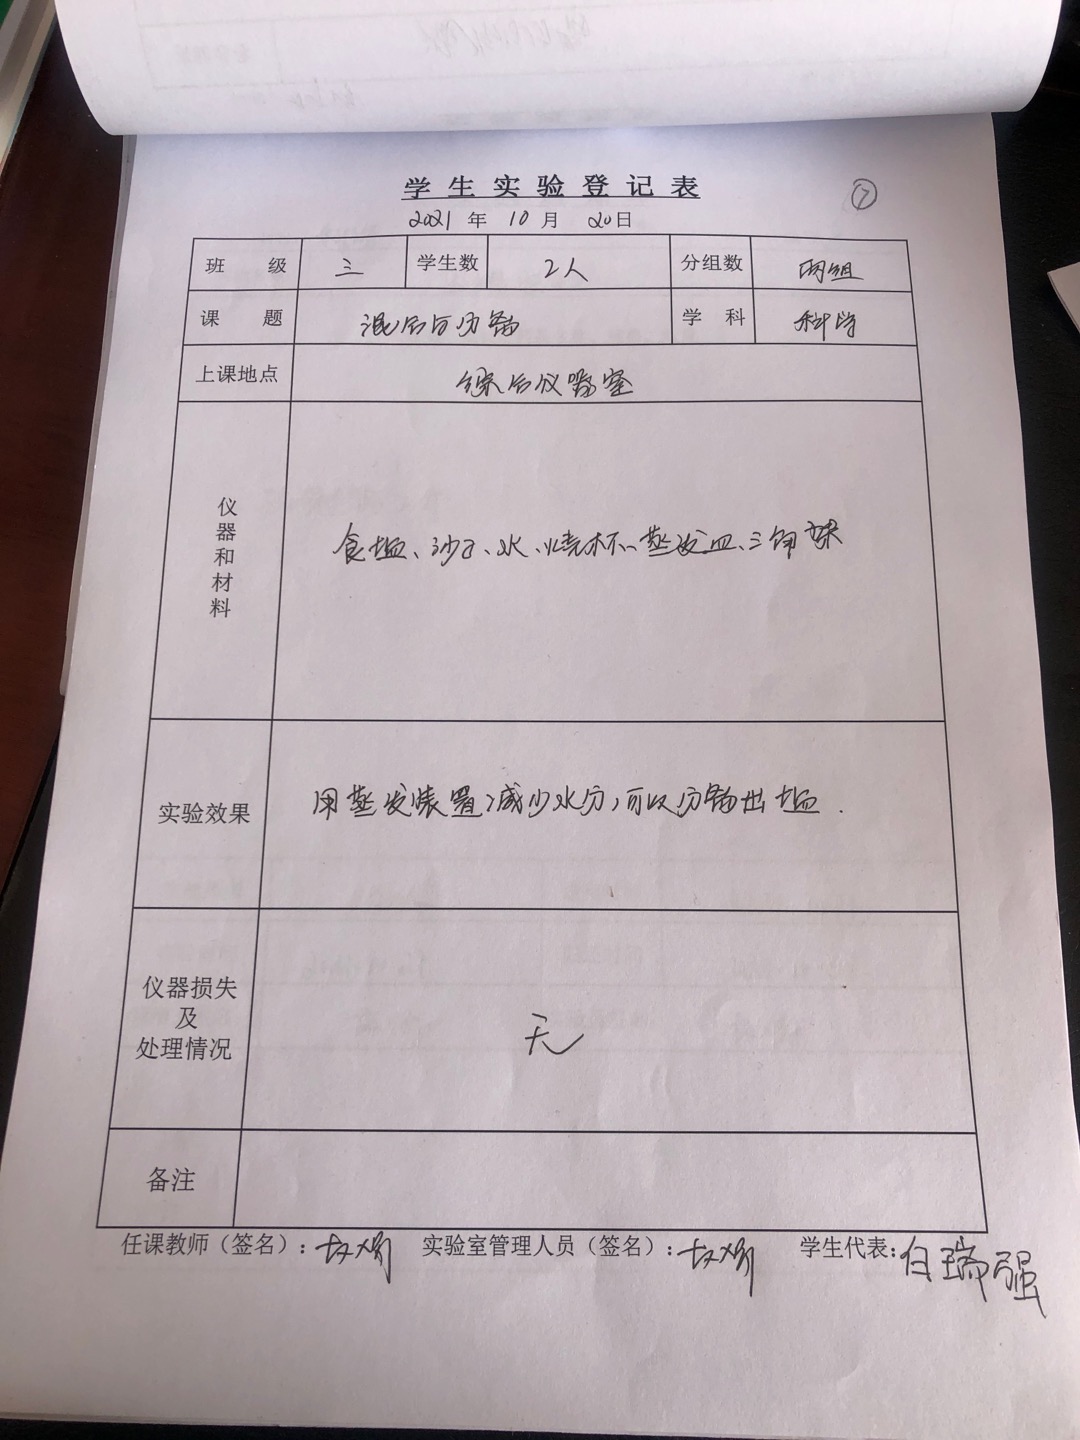 学生实验登记表
⑦
2021年10月20日
班级 三 学生数 2人 分组数 两组
课题 混合与分离 学科 科学
上课地点 综合仪器室
仪器和材料 食盐、沙子、水、烧杯、蒸发皿、三脚架
实验效果 用蒸发装置,减少水分,可以分离出盐.
仪器损失及处理情况 无
备注
任课教师（签名）: 实验室管理人员（签名）: 学生代表: 白瑞强